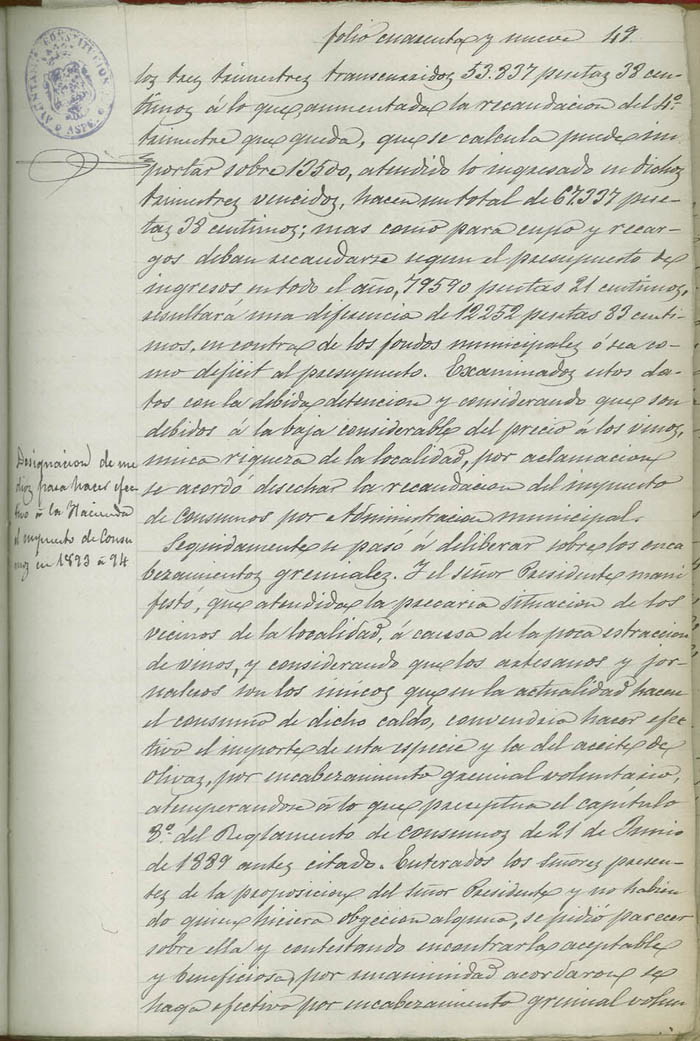 folio cuarenta y nueve 49.
AYUNTAMIENTO CONSTITUCIONAL
ASPE
los tres trimestres transcurridos 53.837 pesetas 38 cen-
timos á lo que, aumentada la recaudacion del 4º
trimestre que queda, que se calcula puede im-
portar sobre 13500, atendido lo ingresado en dichos
trimestres vencidos, hacen un total de 67.337 pese-
tas 38 centimos; mas como para cupo y recar-
gos deban recaudarse segun el presupuesto de
ingresos en todo el año, 79590 pesetas 21 centimos,
resultará una diferencia de 12252 pesetas 83 centi-
mos, en contra de los fondos municipales ó sea co-
mo deficit al presupuesto. Examinados estos da-
tos con la debida detencion y considerando que son
debidos á la baja considerable del precio á los vinos,
unica riqueza de la localidad, por aclamacion
se acordó desechar la recaudacion del impuesto
de consumos por Administracion municipal.
Designacion de me
dios para hacer efec-
tivo á la Hacienda
el impuesto de Consu
mos en 1893 á 94
Seguidamente se pasó á deliberar sobre los enca
bezamientos gremiales. Y el señor Presidente mani
festó, que atendida la precaria situacion de los
vecinos de la localidad, á causa de la poca estraccion
de vinos, y considerando que los artesanos y jor-
naleros son los unicos que en la actualidad hacen
el consumo de dicho caldo, convendria hacer efec-
tivo el importe de esta especie y la del aceite de
olivas, por encabezamiento gremial voluntario,
atemperandose á lo que preceptua el capítulo
8º. del Reglamento de consumos de 21 de Junio
de 1889 antes citado. Enterados los señores presen-
tes de la proposicion del señor Presidente y no habien
do quien hiciera obgecion alguna, se pidió parecer
sobre ella y contestando encontrarla aceptable
y beneficiosa, por unanimidad acordaron se
haga efectivo por encabezamiento gremial volun